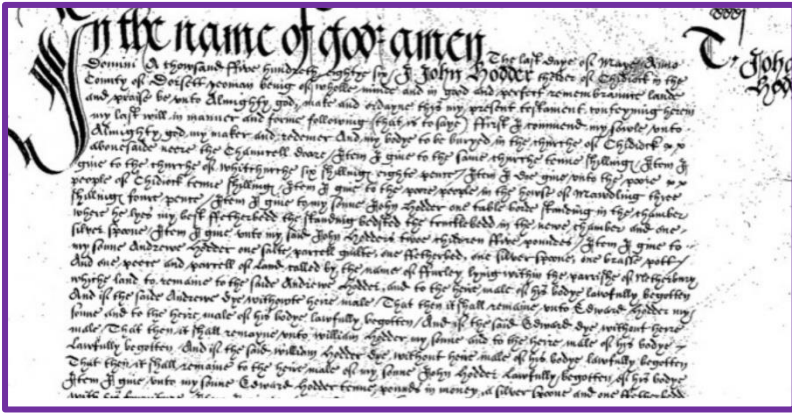 In the name of god amen The last daye of Marche Anno
Domini A thowsand ffive hundreth eighty six / I John Hodder thelder of Chidiock in the
County of Dorsett yeoman being of wholle minde and in good and perfect remembraunce laude
and praise be unto Almighty god, make and ordayne this my present testament conteyning herein
my last will in manner and forme following / that is to saye / ffirst I commend my sowle unto
Almighty god my maker and redemer And my bodye to be buryed in the churche of Chidiock
abovesaide neere the Chauncell doare / Item I give to the same churche tenne shillings / Item I
give to the churche of Whitchurche six shillings eighte pence / Item I doe give unto the poore
people of Chidiock tenne shillings / Item I give to the pore people in the howse of Mawdling three
shillings foure pence / Item I give to my sonne John Hodder one table borde standing in the chamber
where he lyes my best ffetherbedd the standing bedsted the trucklebedd in the newe chamber and one
silver spoone / Item I give unto my said John Hodders twoe children ffive poundes / Item I give to
my sonne Andrewe Hodder one salte parcell guilte, one ffetherbed, one silver spoone, one brasse pott /
And one peece and parcell of Land called by the name of ffurley lying within the parrishe of Netherbury
whiche land to remaine to the saide Andrewe Hodder, and to the heire male of his bodye lawfully begotten
And if the saide Andrewe dye withowte heire male / That then it shall remaine unto Edward Hodder my
sonne and to the heire male of his bodye lawfully begotten / And if the said Edward dye without heire
male / That then it shall remayne unto William Hodder my sonne and to the heire male of his bodye
Lawfully begotten. And if the said William Hodder dye without heire male of his bodye lawfully begotten
That then it shall remaine to the heire male of my sonne John Hodder Lawfully begotten of his bodye
Item I give unto my sonne Edward Hodder tenne pounds in money, a silver spoone and one ffetherbedd
T. John
Hodd